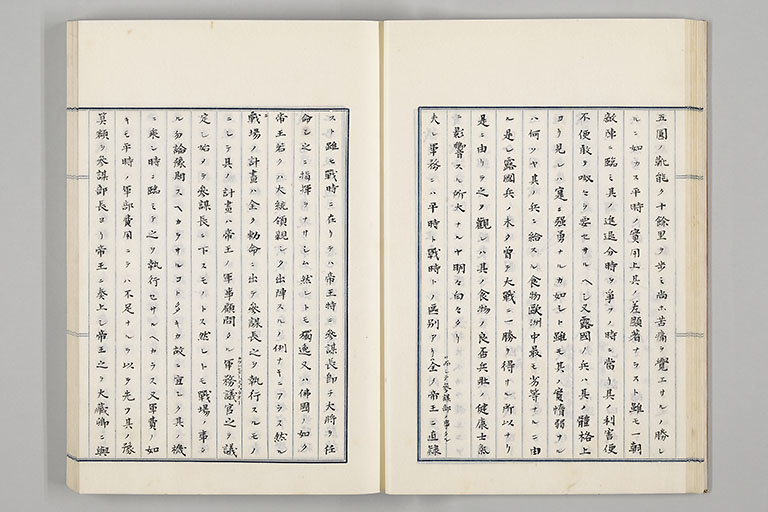 五圓ノ靴能ク十餘里ヲ歩ミ尚ホ苦痛ヲ覺エサルノ勝レ
ルニ如カス平時ノ實用上其ノ差顯著ナラスト雖モ一朝
敵陣ニ臨ミ其ノ進退分時ヲ爭フノ時ニ當リ其ノ利害便
不便敢テ呶セヲ要セサルヘシ又露國ノ兵ハ其ノ體格上
ヨリ見レハ寔ニ强勇ナルカ如シト雖モ其ノ實惰弱ナル
ハ何ソヤ其ノ兵ニ給スル食物歐洲中最モ劣等ナルニ由
ル是レ露國兵ノ未タ曾テ大戰ニ一勝ヲ得サル所以ナリ
是ニ由リテ之ヲ觀レハ其ノ食物ノ良否兵卒ノ健康士氣
ニ影響スル所大ナルヤ明々白々タリ
夫レ軍務ニハ平時ト戰時トノ區別アリ全ノ帝王ニ直隸
スト雖モ戰時ニ在リテハ帝王特ニ參謀長即チ大將ヲ任
命シ之ニ指揮ヲナサシム然レトモ獨逸又ハ佛國ノ如ク
帝王若クハ大統領親シク出陣スルノ例ナキニアラス然ル
戰場ノ計畫ハ全ク勅命ニ出テ參謀長之ヲ執行スルモノ
ニシテ其ノ計畫ハ帝王ノ軍事顧問タル軍務議官之ヲ議
定シ始メテ參謀長ニ下スモノトス然レトモ戰場ノ事
ル勿論豫期スヘカラサルコト多キカ故ニ宜シク其ノ機
ニ來シ時ニ臨ミテ之ヲ執行セサルヘカラス又軍費ノ如
キモ平時ノ軍部費用ニテハ不足ナルヲ以テ先ツ其ノ豫
算額ヲ參謀部長ヨリ帝王ニ奏上シ帝王之ヲ大藏卿ニ與